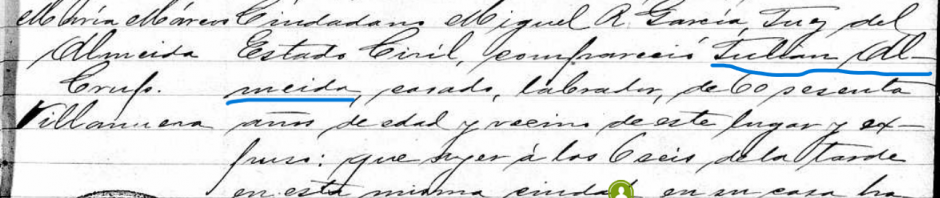 María Marcos Ciudadano Miguel R. García, Juez del
Almeida Estado Civil, compareció Julian Al-
Crufs. meida, casado, labrador, de 60 sesenta
Villanueva años de edad y vecino de este lugar y ex-
puso: que ayer á las 6 seis de la tarde
en esta misma ciudad en su casa ha